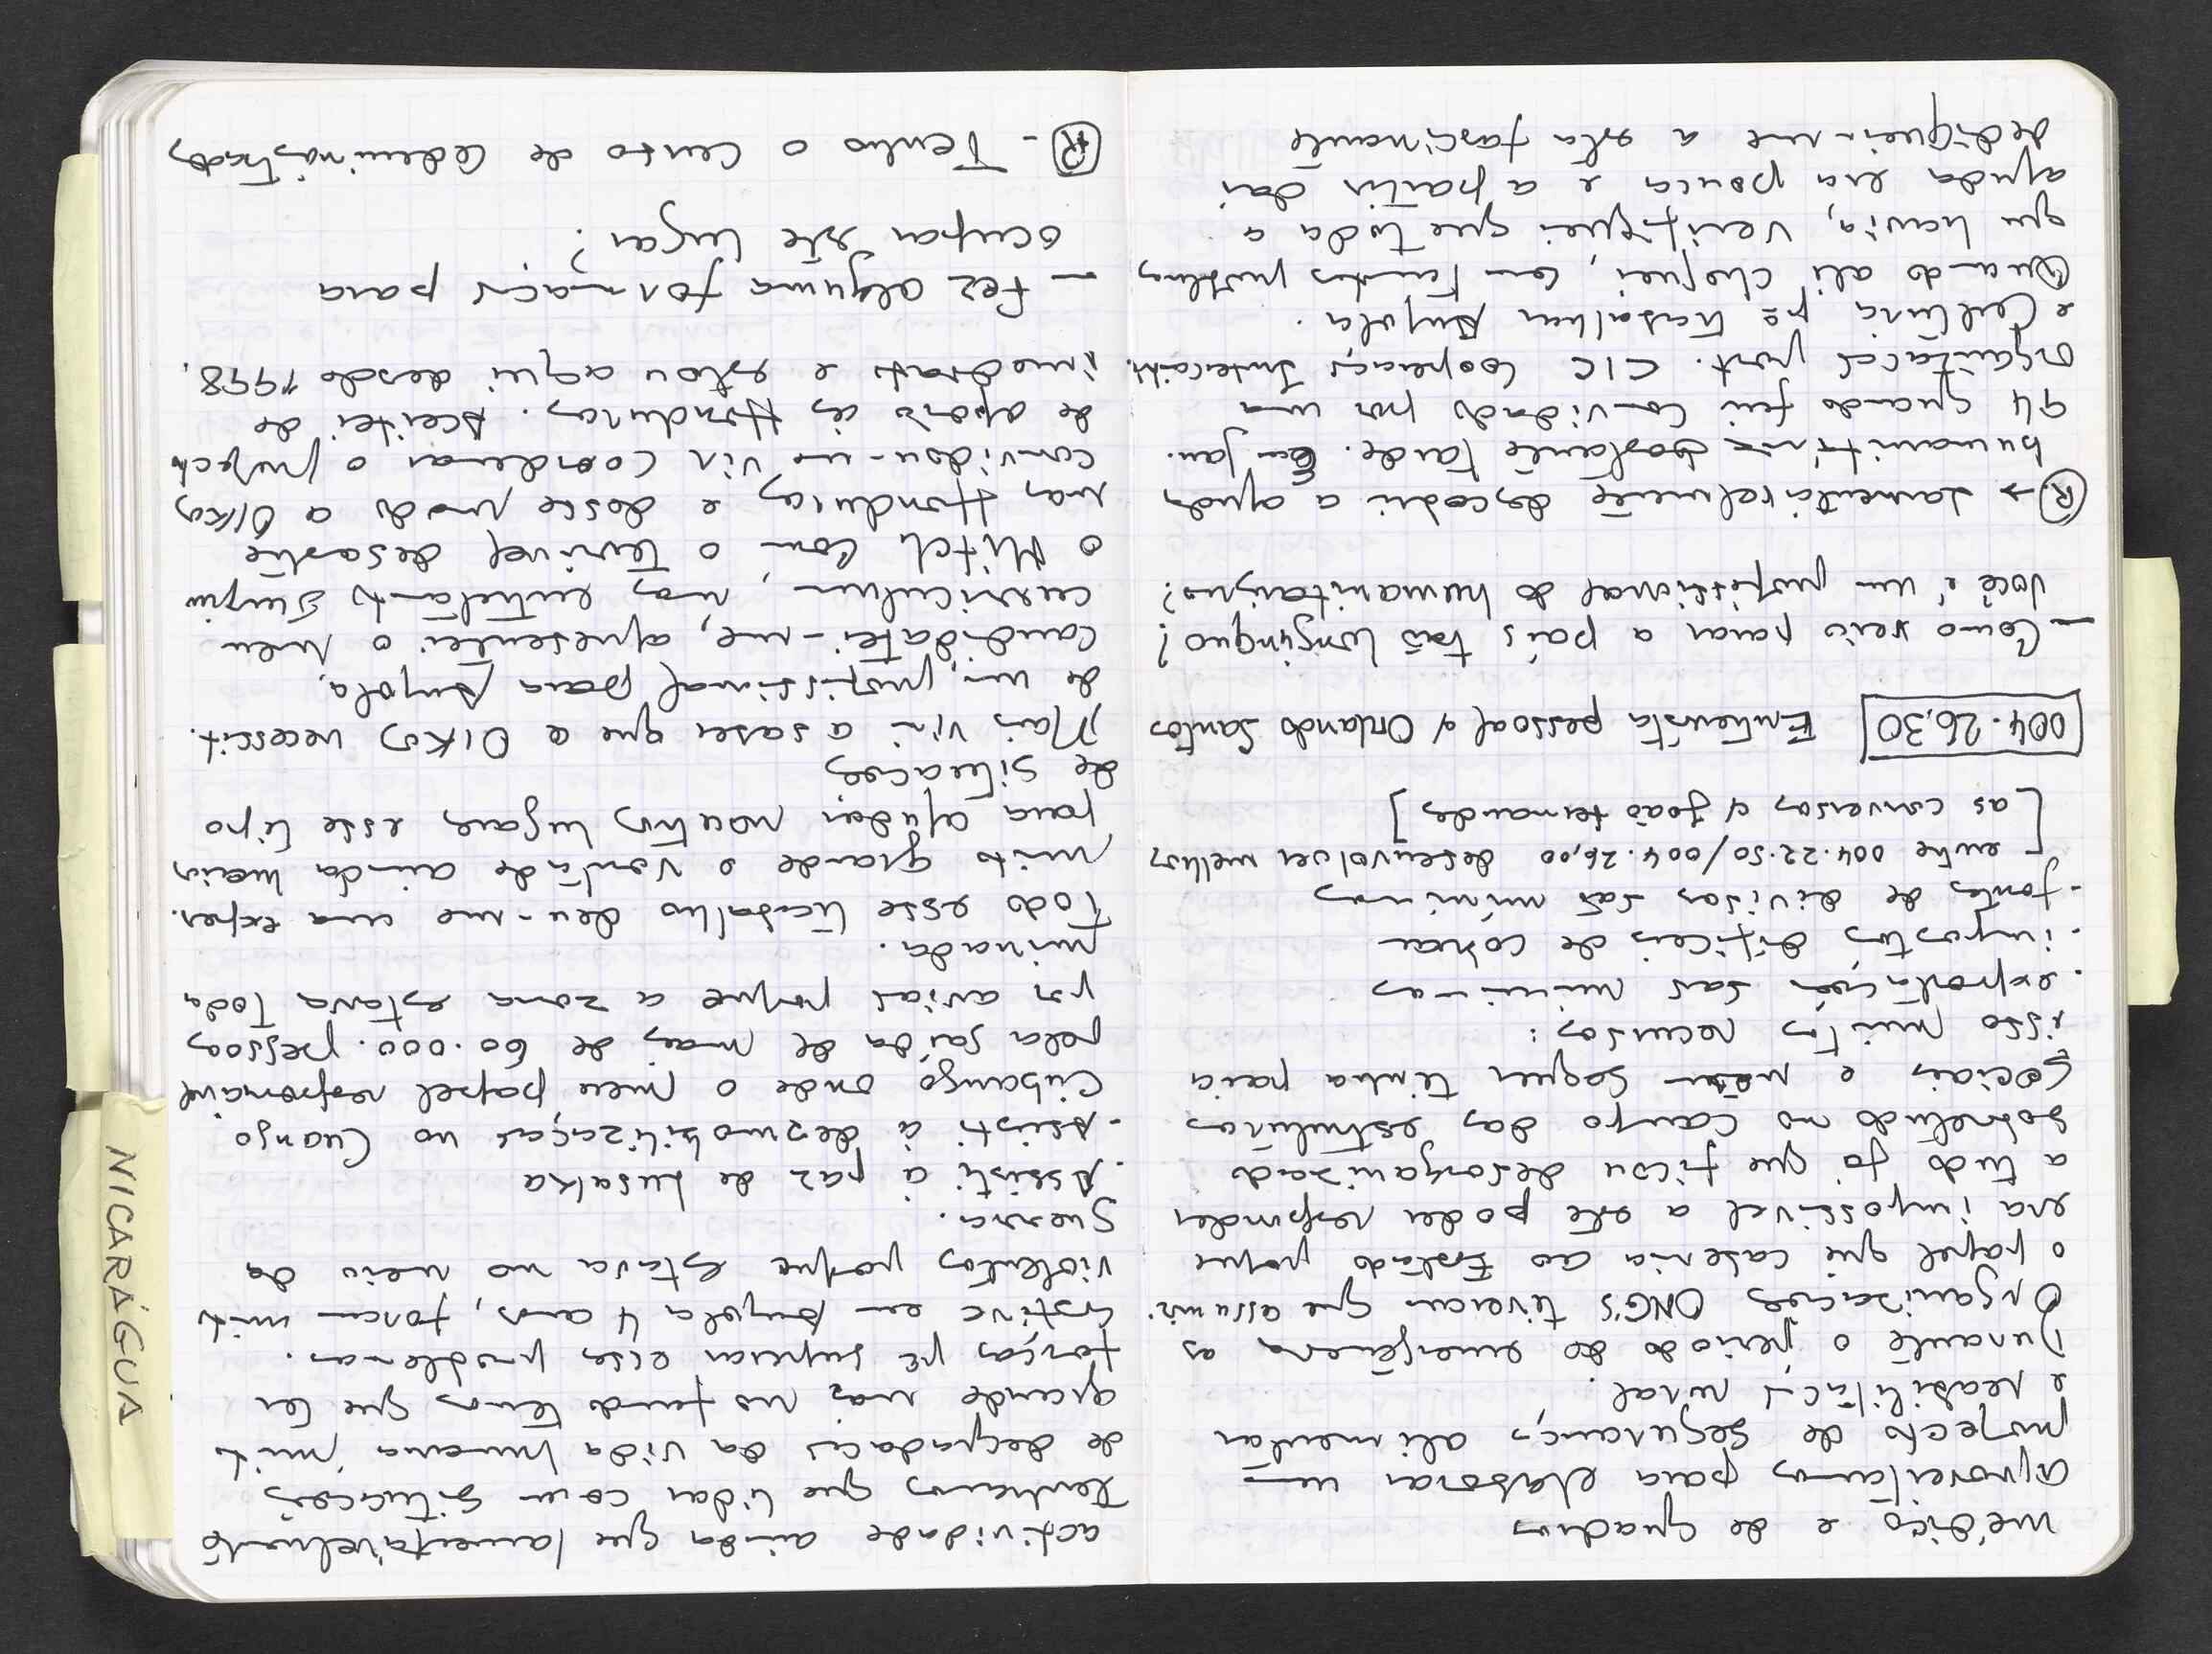 médico e de quadros
aproveitamos para elaborar um
projecto de segurança alimentar
e reabilitação rural.
Durante o período de emergência as
Organizações ONG's tiveram que assumir
o papel que caberia ao Estado porque
era impossível a este poder responder
a tudo já que ficou desorganizado
sobretudo no campo das estruturas
Sociais e nem sequer tinha para
isso muitos recursos:
. exportações são mínimas
. impostos difíceis de cobrar
- fontes de divisas são mínimas
[entre 004.22.50/004.26,00 desenvolver melhor
as conversas c/ João Fernandes]
004.26,30 Entrevista pessoal c/ Orlando Santos
- Como veio parar a país tão longínquo?
Você é um profissional do humanitarismo?
(R) → Lamentavelmente descobri a ajuda
humanitária bastante tarde. Em Jan.
94 quando fui convidado por uma
organização port. CIC Cooperação Intercâmb.
e Cultura pª trabalhar Angola.
Quando ali cheguei, com tantos problemas
que havia, verifiquei que toda a
ajuda era pouca e a partir daí
dediquei-me a esta fascinante
actividade ainda que lamentavelmente
tenhamos que lidar com situações
de degradação da vida humana muito
grande mas no fundo temos que ter
forças pª superar esses problemas.
Estive em Angola 4 anos, foram muito
violentos porque estava no meio da
guerra.
. Assisti à paz de Lusaka
- Assisti à desmobilização no Cuango
Cubango onde o meu papel responsável
pela saída de mais de 60.000 pessoas
por avião porque a zona estava toda
minada.
Todo esse trabalho deu-me uma exper.
muito grande e vontade ainda maior
para ajudar noutros lugares esse tipo
de situações
Mais vim a saber que a OIKOS necessit.
de um profissional para Angola,
candidatei-me, apresentei o meu
curriculum, mas entretanto surgiu
o Mitch com o terrível desastre
nas Honduras e desse modo a OIKOS
convidou-me vir coordenar o projecto
de apoio às Honduras. Aceitei de
imediato e estou aqui desde 1998.
- Fez alguma formação para
ocupar este lugar?
(R) - Tenho o curso de Administrador
NICARÁGUA